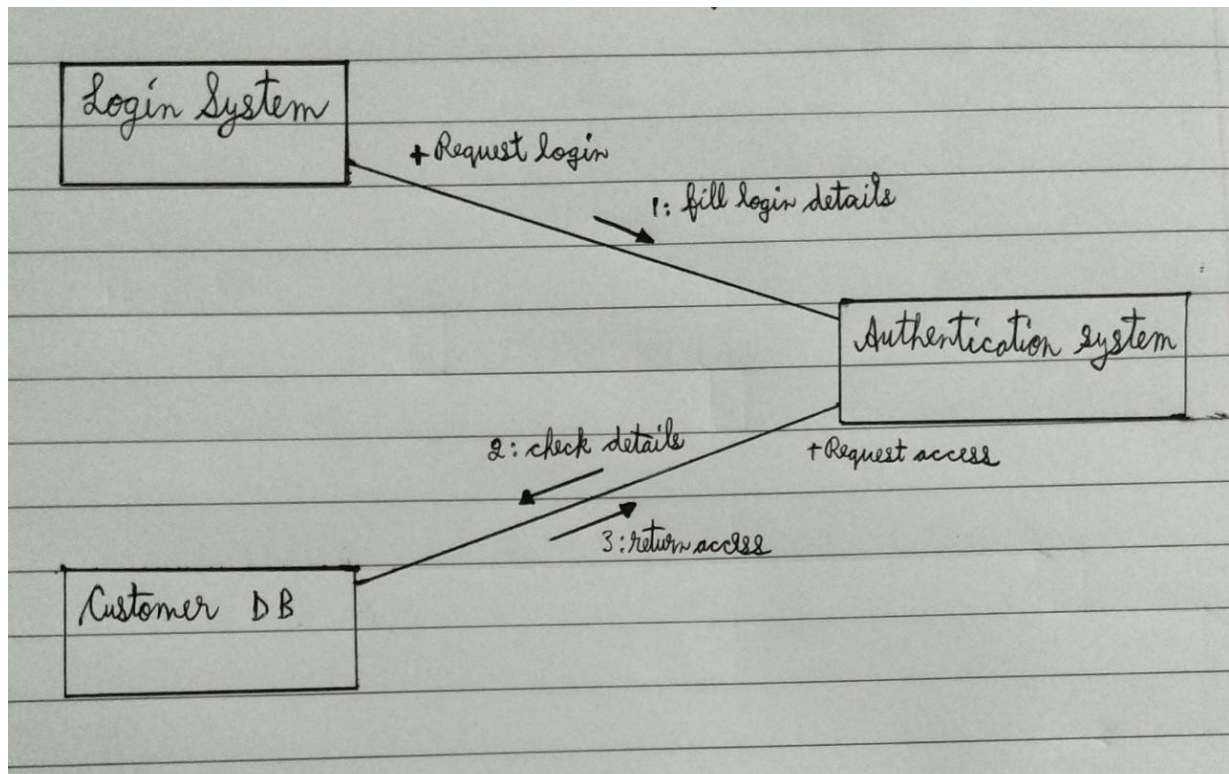 Login System
+ Request login
1: fill login details
Authentication system
2: check details
+Request access
3: return access
Customer DB